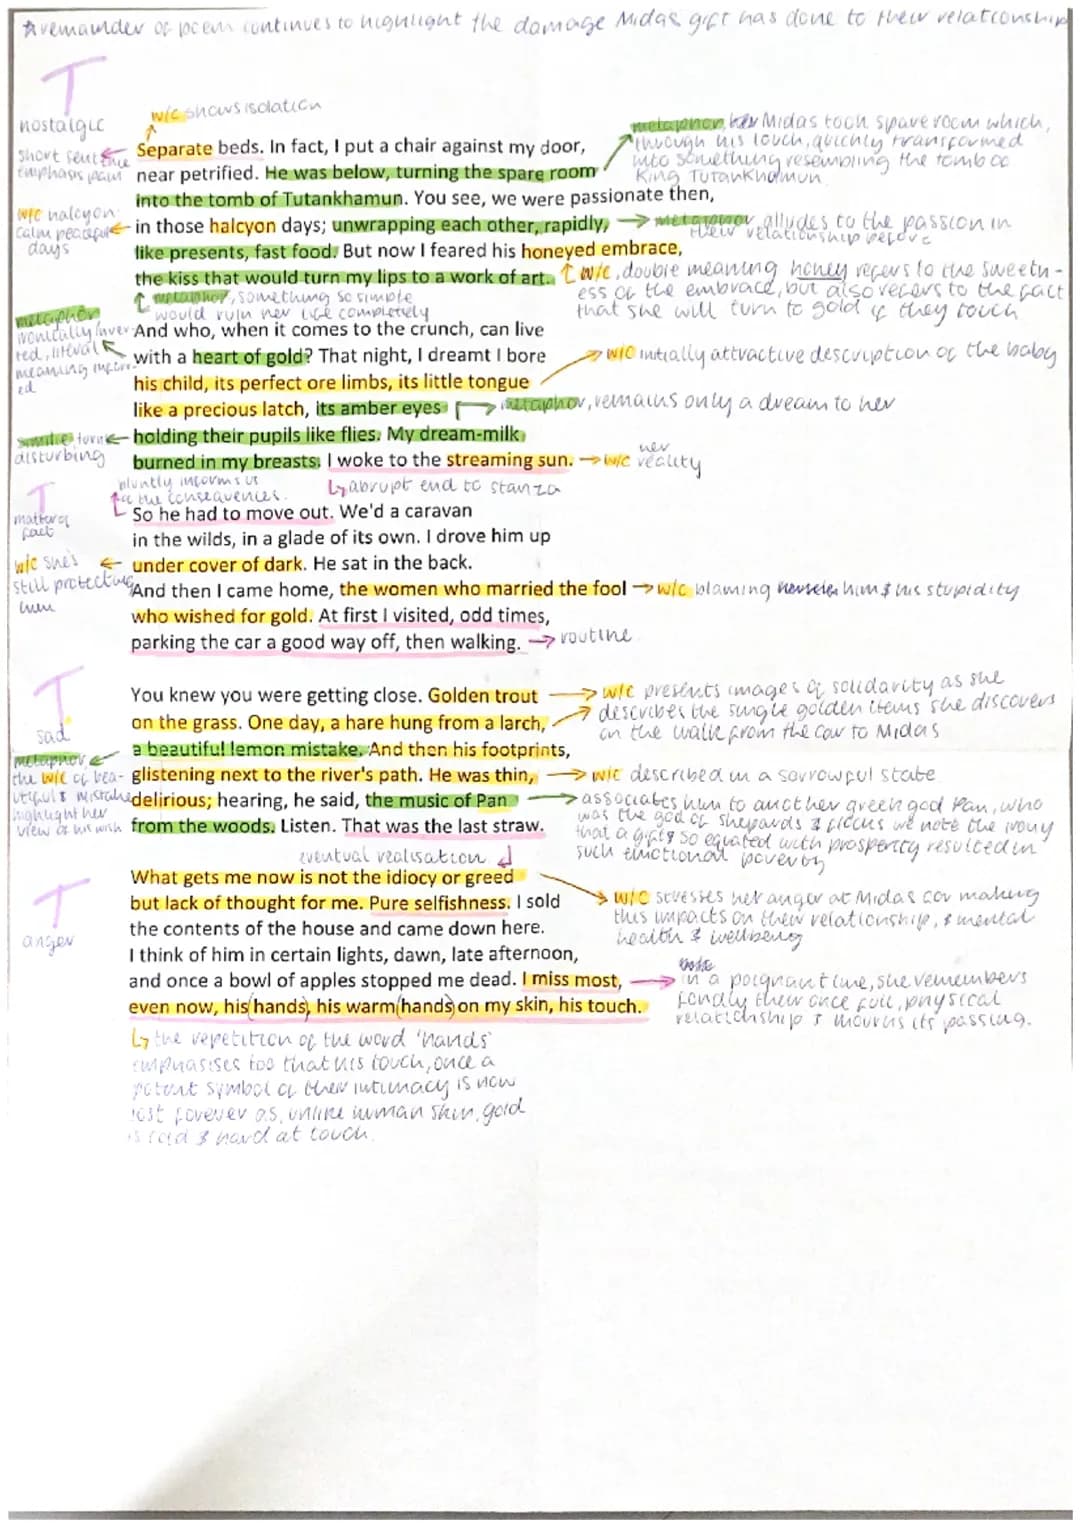 *remainder of poem continues to highlight the damage Midas gift has done to their relationship
T
nostalgic
w/c shows isolation
short sentence
emphasis pain
Separate beds. In fact, I put a chair against my door,
near petrified. He was below, turning the spare room
into the tomb of Tutankhamun. You see, we were passionate then,
in those halcyon days; unwrapping each other, rapidly,
like presents, fast food. But now I feared his honeyed embrace,
the kiss that would turn my lips to a work of art.
metaphor, Midas took spare room which,
through his touch, quickly transformed
into something resembling the tomb of
King Tutankhamun
w/c halcyon:
calm peaceful
days
metaphor, alludes to the passion in
their relationship before
w/c, double meaning honey refers to the sweetn-
ess of the embrace, but also refers to the fact
that she will turn to gold if they touch
metaphor, something so simple
would ruin her life completely
metaphor
ironically inver-
ted, literal
meaning
And who, when it comes to the crunch, can live
with a heart of gold? That night, I dreamt I bore
his child, its perfect ore limbs, its little tongue
like a precious latch, its amber eyes
holding their pupils like flies. My dream-milk
burned in my breasts. I woke to the streaming sun.
w/c initially attractive description of the baby
metaphor, remains only a dream to her
simile turn
disturbing
w/c her
reality
abrupt end to stanza
bluntly informs us
of the consequences.
T
matter of
fact
So he had to move out. We'd a caravan
in the wilds, in a glade of its own. I drove him up
under cover of dark. He sat in the back.
And then I came home, the women who married the fool
who wished for gold. At first I visited, odd times,
parking the car a good way off, then walking.
w/c she's
still protecting
him
w/c blaming him & his stupidity
routine
T
sad
You knew you were getting close. Golden trout
on the grass. One day, a hare hung from a larch,
a beautiful lemon mistake. And then his footprints,
glistening next to the river's path. He was thin,
delirious; hearing, he said, the music of Pan
from the woods. Listen. That was the last straw.
w/c presents images of solidarity as she
describes the single golden items she discovers
on the walk from the car to Midas
metaphor,
the w/c of bea-
utiful & mistake
highlight her
view of his wish
w/c described in a sorrowful state
associates him to another greek god Pan, who
was the god of shepards & flocks we note the irony
that a gift so equated with prosperity resulted in
such emotional poverty
eventual realisation
T
anger
What gets me now is not the idiocy or greed
but lack of thought for me. Pure selfishness. I sold
the contents of the house and came down here.
I think of him in certain lights, dawn, late afternoon,
and once a bowl of apples stopped me dead. I miss most,
even now, his hands, his warm hands on my skin, his touch.
w/c stresses her anger at Midas for making
this impacts on their relationship, & mental
health & wellbeing
in a poignant line, she remembers
fondly their once full, physical
relationship & mourns its passing.
the repetition of the word 'hands'
emphasises too that his touch, once a
potent symbol of their intimacy is now
lost forever as, unlike human skin, gold
is cold & hard at touch.